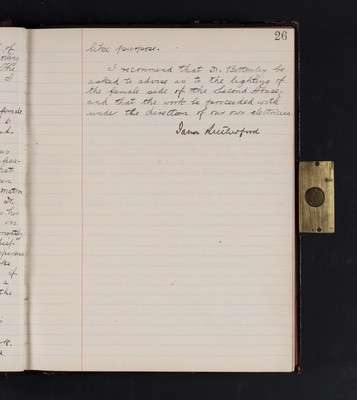 26
like purpose.
I recommend that Dr. Bottomley be
asked to advise as to the lighting of
the female side of the Second House,
and that the work be proceeded with
under the direction of our own electrician.
James Rutherford
of
the
female
as
that
Matron
Dr.
on
if
a
the